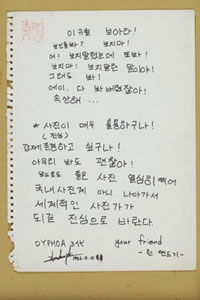 이규철 보아라!
보는 봐? 보지마!
어! 보지말랬는데 또봐!
보지마! 보지말란 말이야!
그래도 봐!
에이, 다 봐버렸잖아!
속상해...
* 사진이 매우 훌륭하구나!
(진심)
감케 하고 싶구나!
아무리 봐도 괜찮아!
앞으로도 좋은 사진 열심히 찍어
국내사진계 아니 나아가서
세계적인 사진가가
되길 진심으로 바란다.
your friend